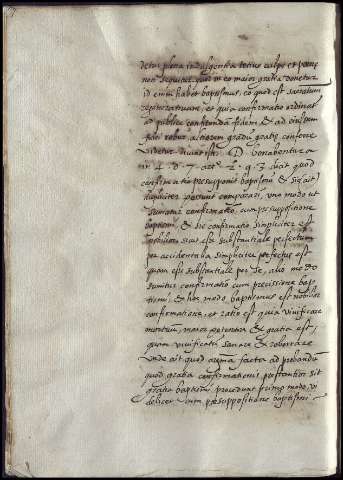 detur plena indulgentia totius culpe et pene
non sequitur quod in eo maior gratia donetur
id enim habet baptismus, eo quod est sacratum
regenerationis, et quia confirmatio ordinat
publice confitenda fidem et ad eiusdem
fidei robur, altiorem gradum gratie conferre
videtur D. bonaventura
in 4. d. 7. art. q. 3. dicit quod
confirmatio presupponit baptismum et sic ait
dupliciter possunt comparari, uno modo ut
sumatur confirmatio, cum presuppositione
baptismi, et sic confirmatio simpliciter est
nobilior sicut esse substantiale perfectum
per accidentalia simpliciter perfectius est
quam esse substantiale per se, alio modo
sumitur confirmatio cum precisione bap
tismi, et hoc modo baptismus est nobilior
confirmatione, et ratio est quia vivificare
mortuum, maior potentia et gratia est,
quam vivificatum sanare et roborare
unde ait quod arguma facta ad probandum
quod gratia confirmationis prestantior sit
gratia baptismi, procedunt primo modo, vi
delicet cum presuppositione baptismi